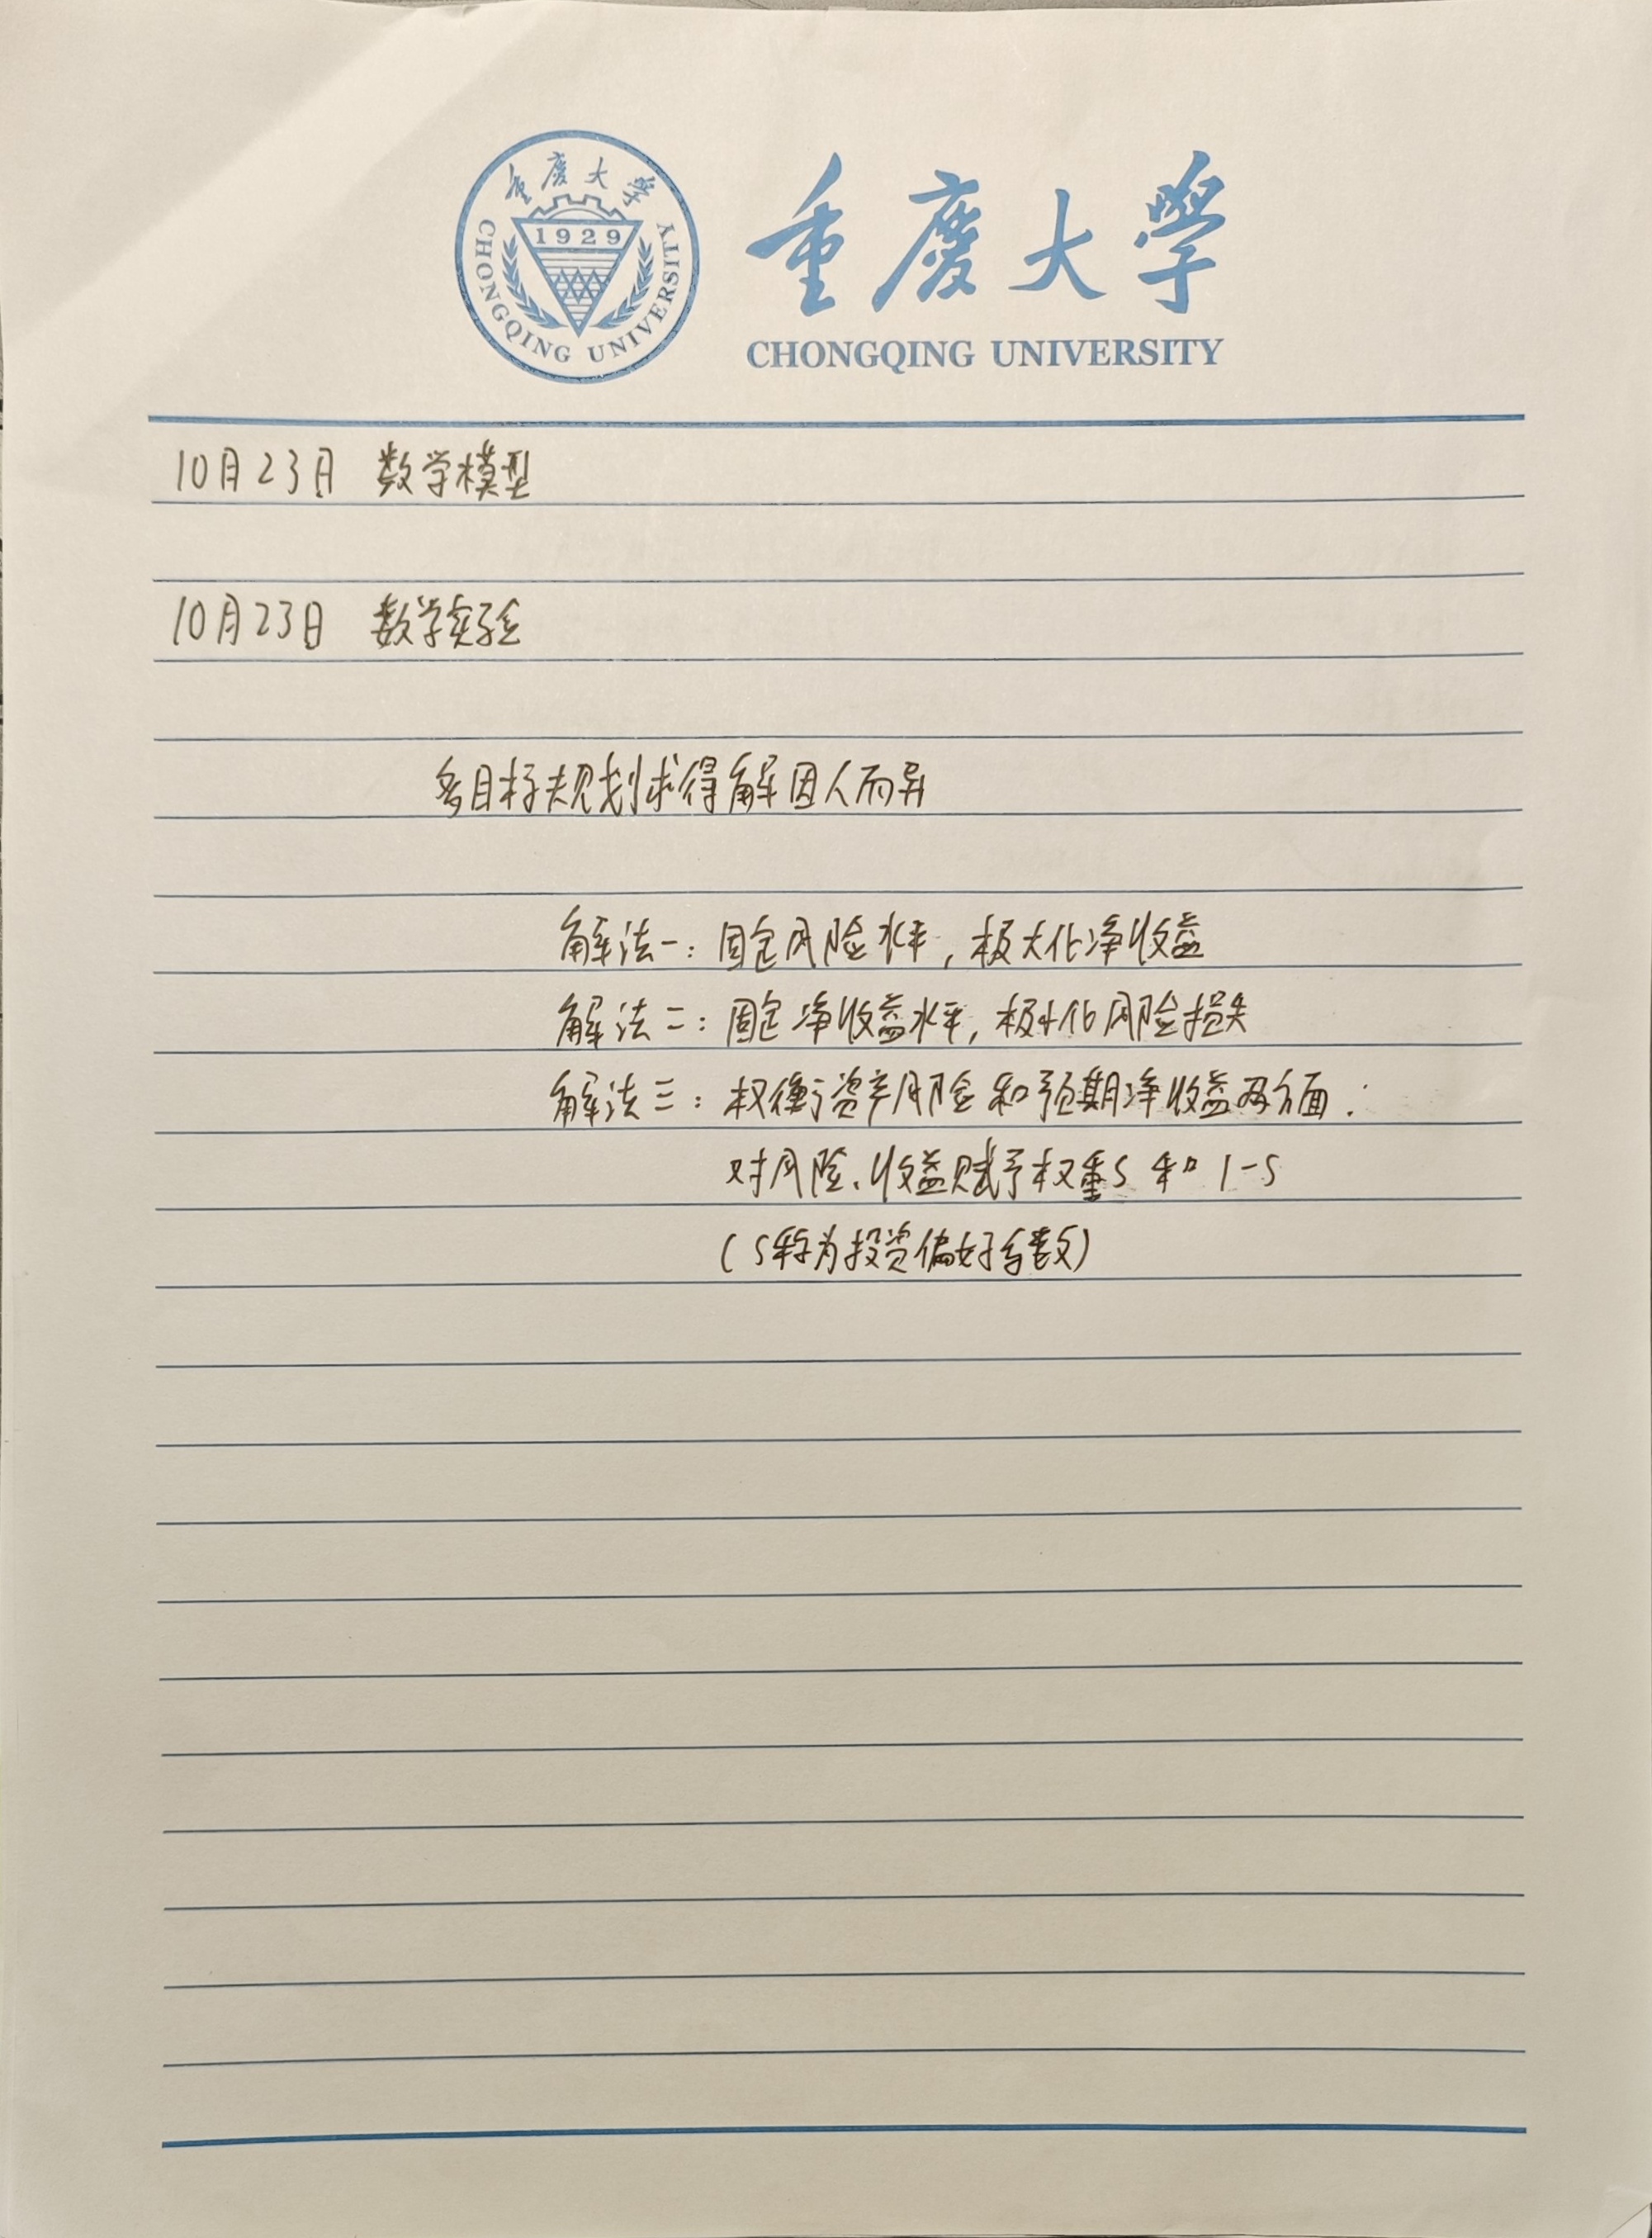 重慶大學
1929
CHONGQING UNIVERSITY
重慶大學
CHONGQING UNIVERSITY
10月23日 数学模型
10月23日 数学实验
多目标规划求得解因人而异
解法一：固定风险水平，极大化净收益
解法二：固定净收益水平，极小化风险损失
解法三：权衡资产风险和预期净收益两方面：
对风险、收益赋予权重s 和 1-s
（s称为投资偏好系数）